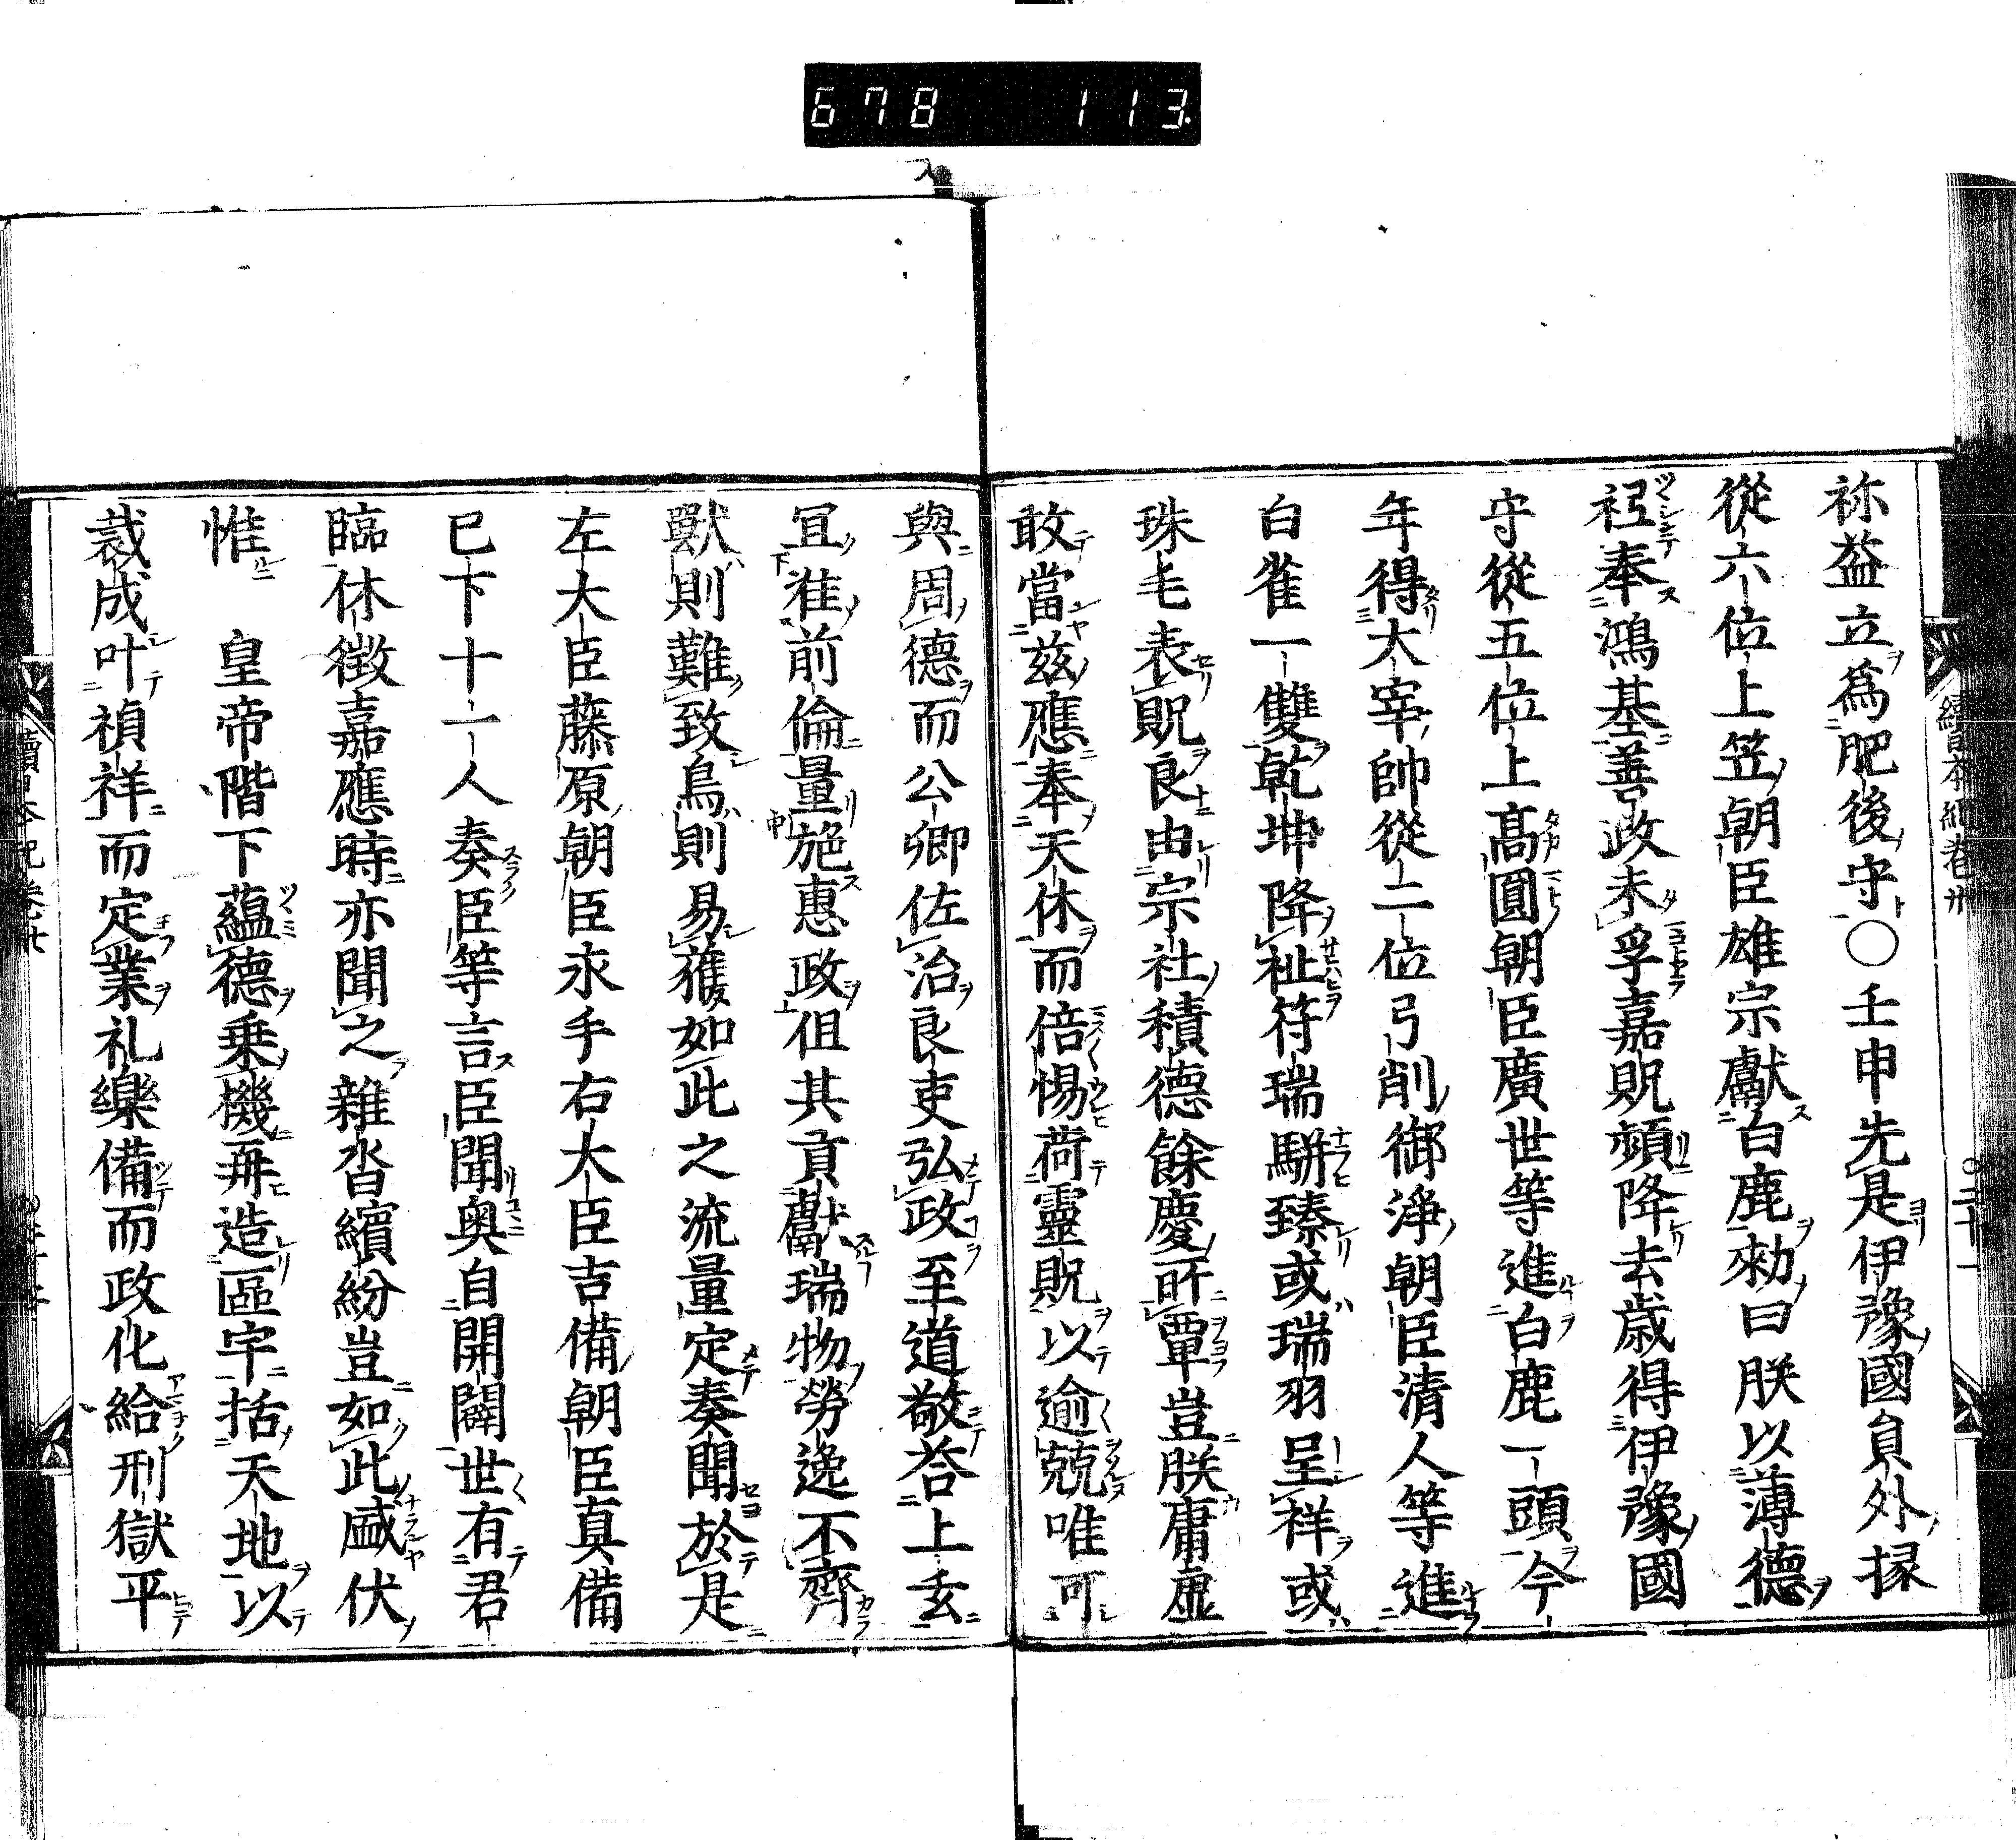 678 113
祢益立爲肥後守〇壬申先是伊豫國員外掾
從六位上笠朝臣雄宗獻白鹿勑曰朕以薄德
祗奉鴻基善政未孚嘉貺頻降去歳得伊豫國
守從五位上髙圓朝臣廣世等進白鹿一頭今
年得大宰帥從二位弓削御淨朝臣清人等進
白雀一雙乾坤降祉符瑞駢臻或瑞羽呈祥或
珠毛表貺良由宗社積德餘慶所覃豈朕庸虚
敢當兹應奉天休而倍惕荷靈貺以逾兢唯可
與周德而公卿佐治良吏弘政至道敬荅上玄
冝准前倫量施惠政但其貢獻瑞物勞逸不齊
獸則難致鳥則易獲如此之流量定奏聞於是
左大臣藤原朝臣永手右大臣吉備朝臣真備
已下十一人奏臣等言臣聞奥自開闢世有君
臨休徴嘉應時亦聞之雜沓繽紛豈如此盛伏
惟　皇帝階下蘊德乗機再造區宇括天地以
裁成叶禎祥而定業礼樂備而政化給刑獄平